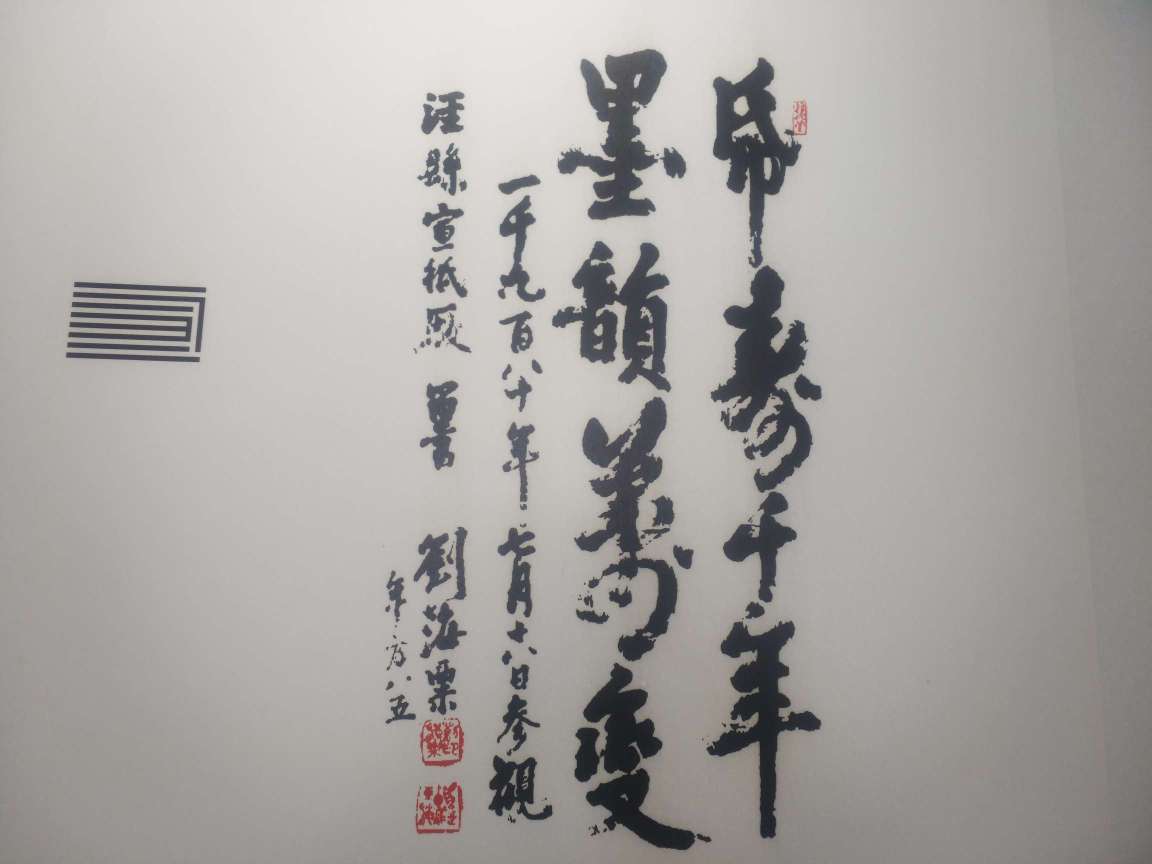 帋壽千年
墨韻萬變
一千九百八十年七月十八日參觀
涇縣宣紙厰留書 劉海粟
年方八五